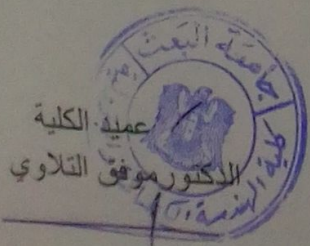 جامعة البعث
كلية الهندسة
عميد الكلية
الدكتور موفق التلاوي